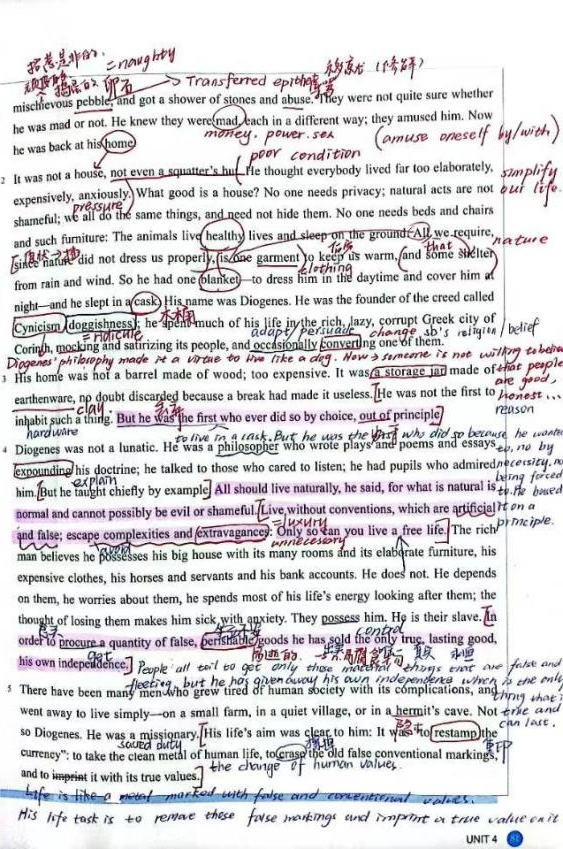 招惹是非的. = naughty
卵石 → Transferred epithet
mischievous pebble, and got a shower of stones and abuse. They were not quite sure whether
he was mad or not. He knew they were mad, each in a different way; they amused him. Now
money. power. sex (amuse oneself by/with)
he was back at his home.
poor condition
2 It was not a house, not even a squatter's hut. He thought everybody lived far too elaborately,
simplify
expensively, anxiously. What good is a house? No one needs privacy; natural acts are not
our life.
pressure
shameful; we all do the same things, and need not hide them. No one needs beds and chairs
and such furniture: The animals live healthy lives and sleep on the ground. All we require,
that nature
since nature did not dress us properly, is one garment to keep us warm, and some shelter
clothing
from rain and wind. So he had one blanket—to dress him in the daytime and cover him at
night—and he slept in a cask. His name was Diogenes. He was the founder of the creed called
木桶
Cynicism (doggishness); he spent much of his life in the rich, lazy, corrupt Greek city of
= ridicule adapt/persuade change sb's religion/belief
Corinth, mocking and satirizing its people, and occasionally converting one of them.
Diogenes' philosophy made it a virtue to live like a dog. Now → someone is not willing to believe
that people are good, honest...
3 His home was not a barrel made of wood; too expensive. It was a storage jar made of
earthenware, no doubt discarded because a break had made it useless. He was not the first to
clay
reason
inhabit such a thing. But he was the first who ever did so by choice, out of principle.
hardware
to live in a cask. But he was the first who did so because he wanted
to, no by necessity, not being forced to. He based it on a principle.
4 Diogenes was not a lunatic. He was a philosopher who wrote plays and poems and essays
expounding his doctrine; he talked to those who cared to listen; he had pupils who admired
explain
him. But he taught chiefly by example. All should live naturally, he said, for what is natural is
normal and cannot possibly be evil or shameful. Live without conventions, which are artificial
= luxury
and false; escape complexities and extravagances: Only so can you live a free life. The rich
avoid unnecessary
man believes he possesses his big house with its many rooms and its elaborate furniture, his
expensive clothes, his horses and servants and his bank accounts. He does not. He depends
on them, he worries about them, he spends most of his life's energy looking after them; the
thought of losing them makes him sick with anxiety. They possess him. He is their slave. In
control
order to procure a quantity of false, perishable goods he has sold the only true, lasting good,
get
his own independence.
People all toil to get only those material things that are false and
fleeting, but he has given away his own independence which is the only
thing that is true and can last.
5 There have been many men who grew tired of human society with its complications, and
went away to live simply—on a small farm, in a quiet village, or in a hermit's cave. Not
so Diogenes. He was a missionary. His life's aim was clear to him: It was "to restamp the
sacred duty 重印
currency": to take the clean metal of human life, to erase the old false conventional markings,
and to imprint it with its true values.
the change of human values.
Life is like a metal marked with false and conventional values.
His life task is to remove those false markings and imprint a true value on it
UNIT 4